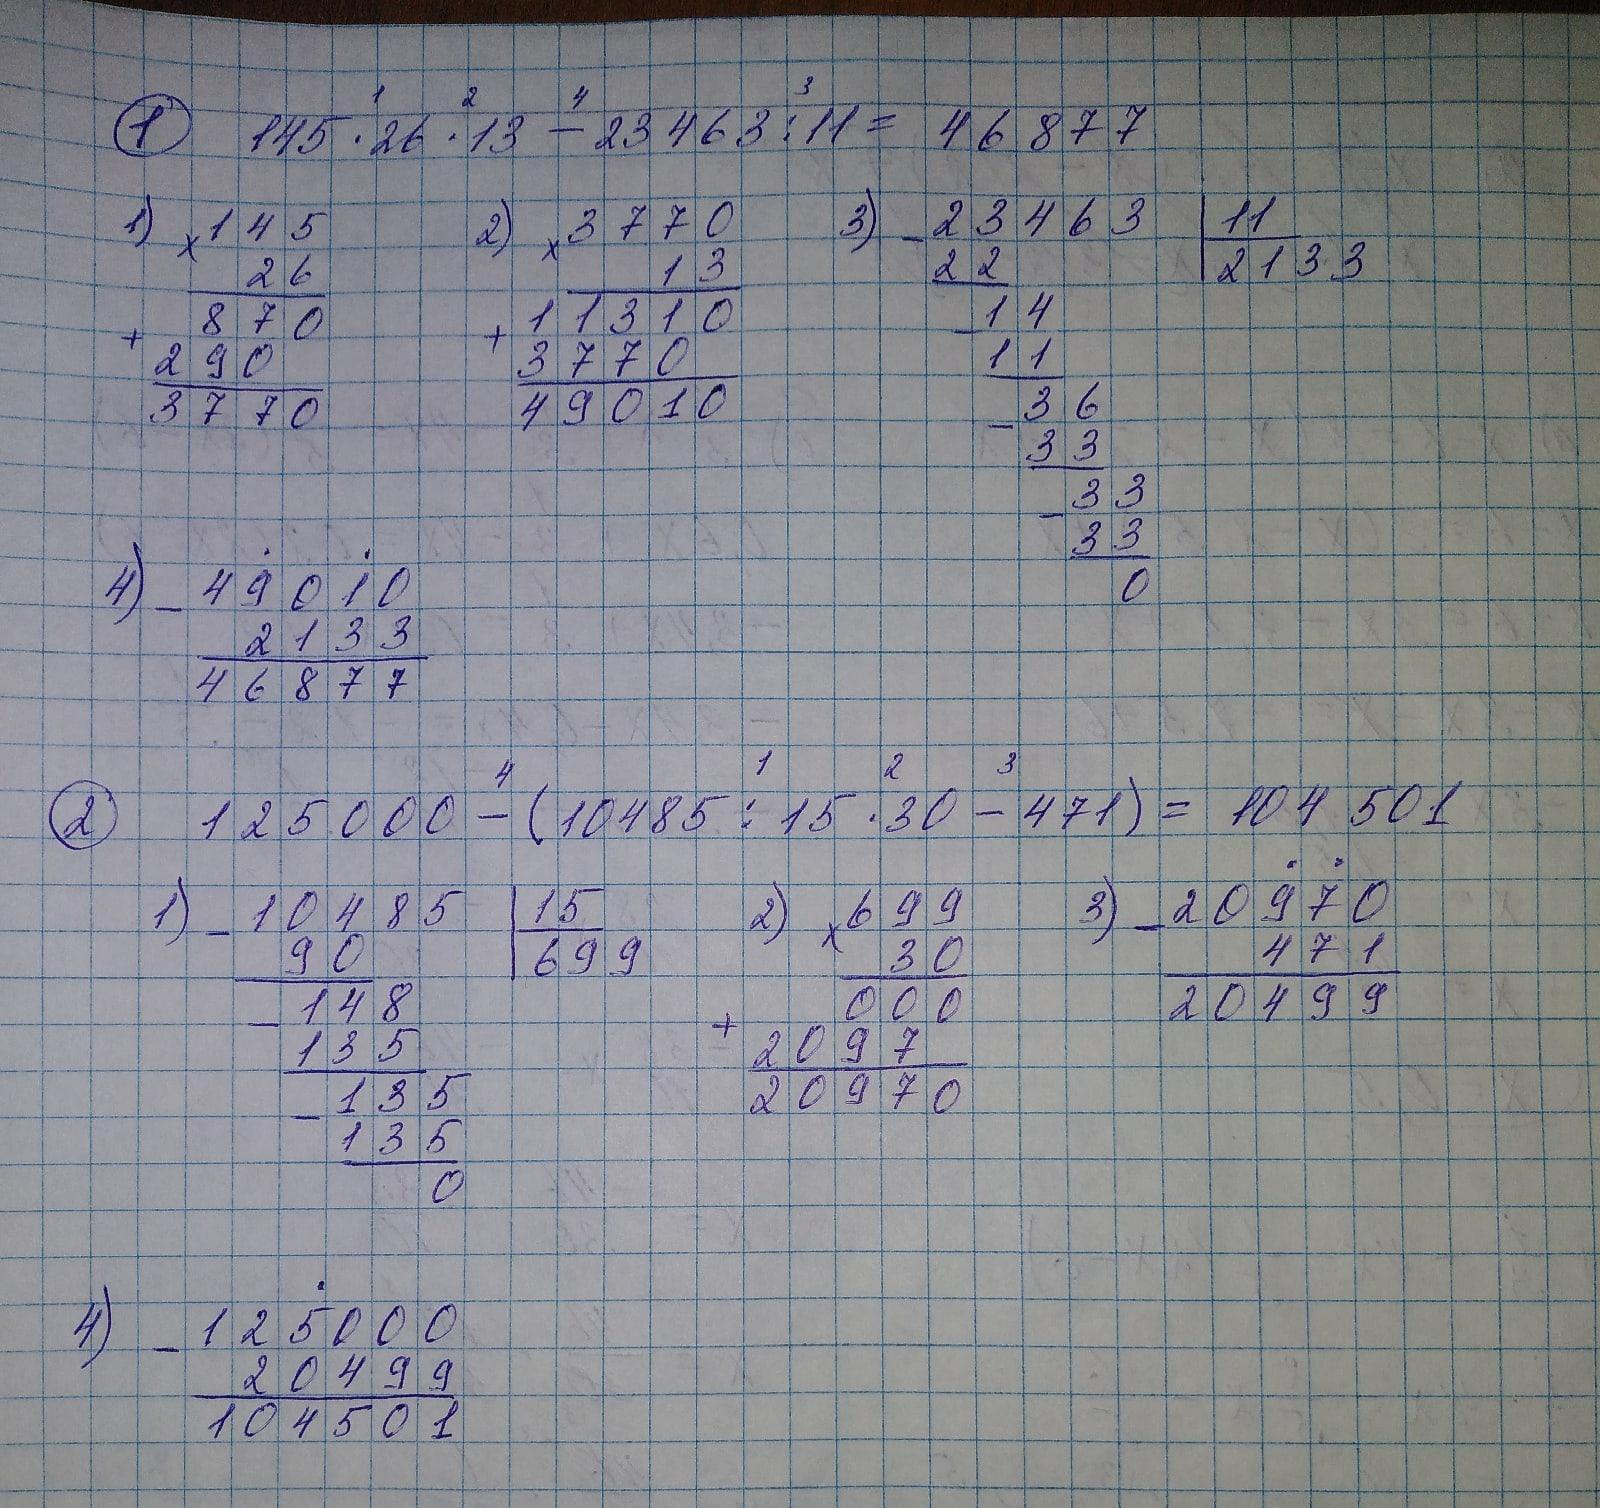 1 2 4 3
① 145 · 26 · 13 – 23463 : 11 = 46877
1) × 145 2) × 3770 3) – 23463 | 11
26 13 22 2133
+ 870 + 11310 – 14
290 3770 11
3770 49010 – 36
33
– 33
33
0
4) – 49010
2133
46877
4 1 2 3
② 125000 – (10485 : 15 · 30 – 471) = 104 501
1) – 10485 | 15 2) × 699 3) – 20970
90 699 30 471
– 148 000 20499
135 + 2097
– 135 20970
135
0
4) – 125000
20499
104501